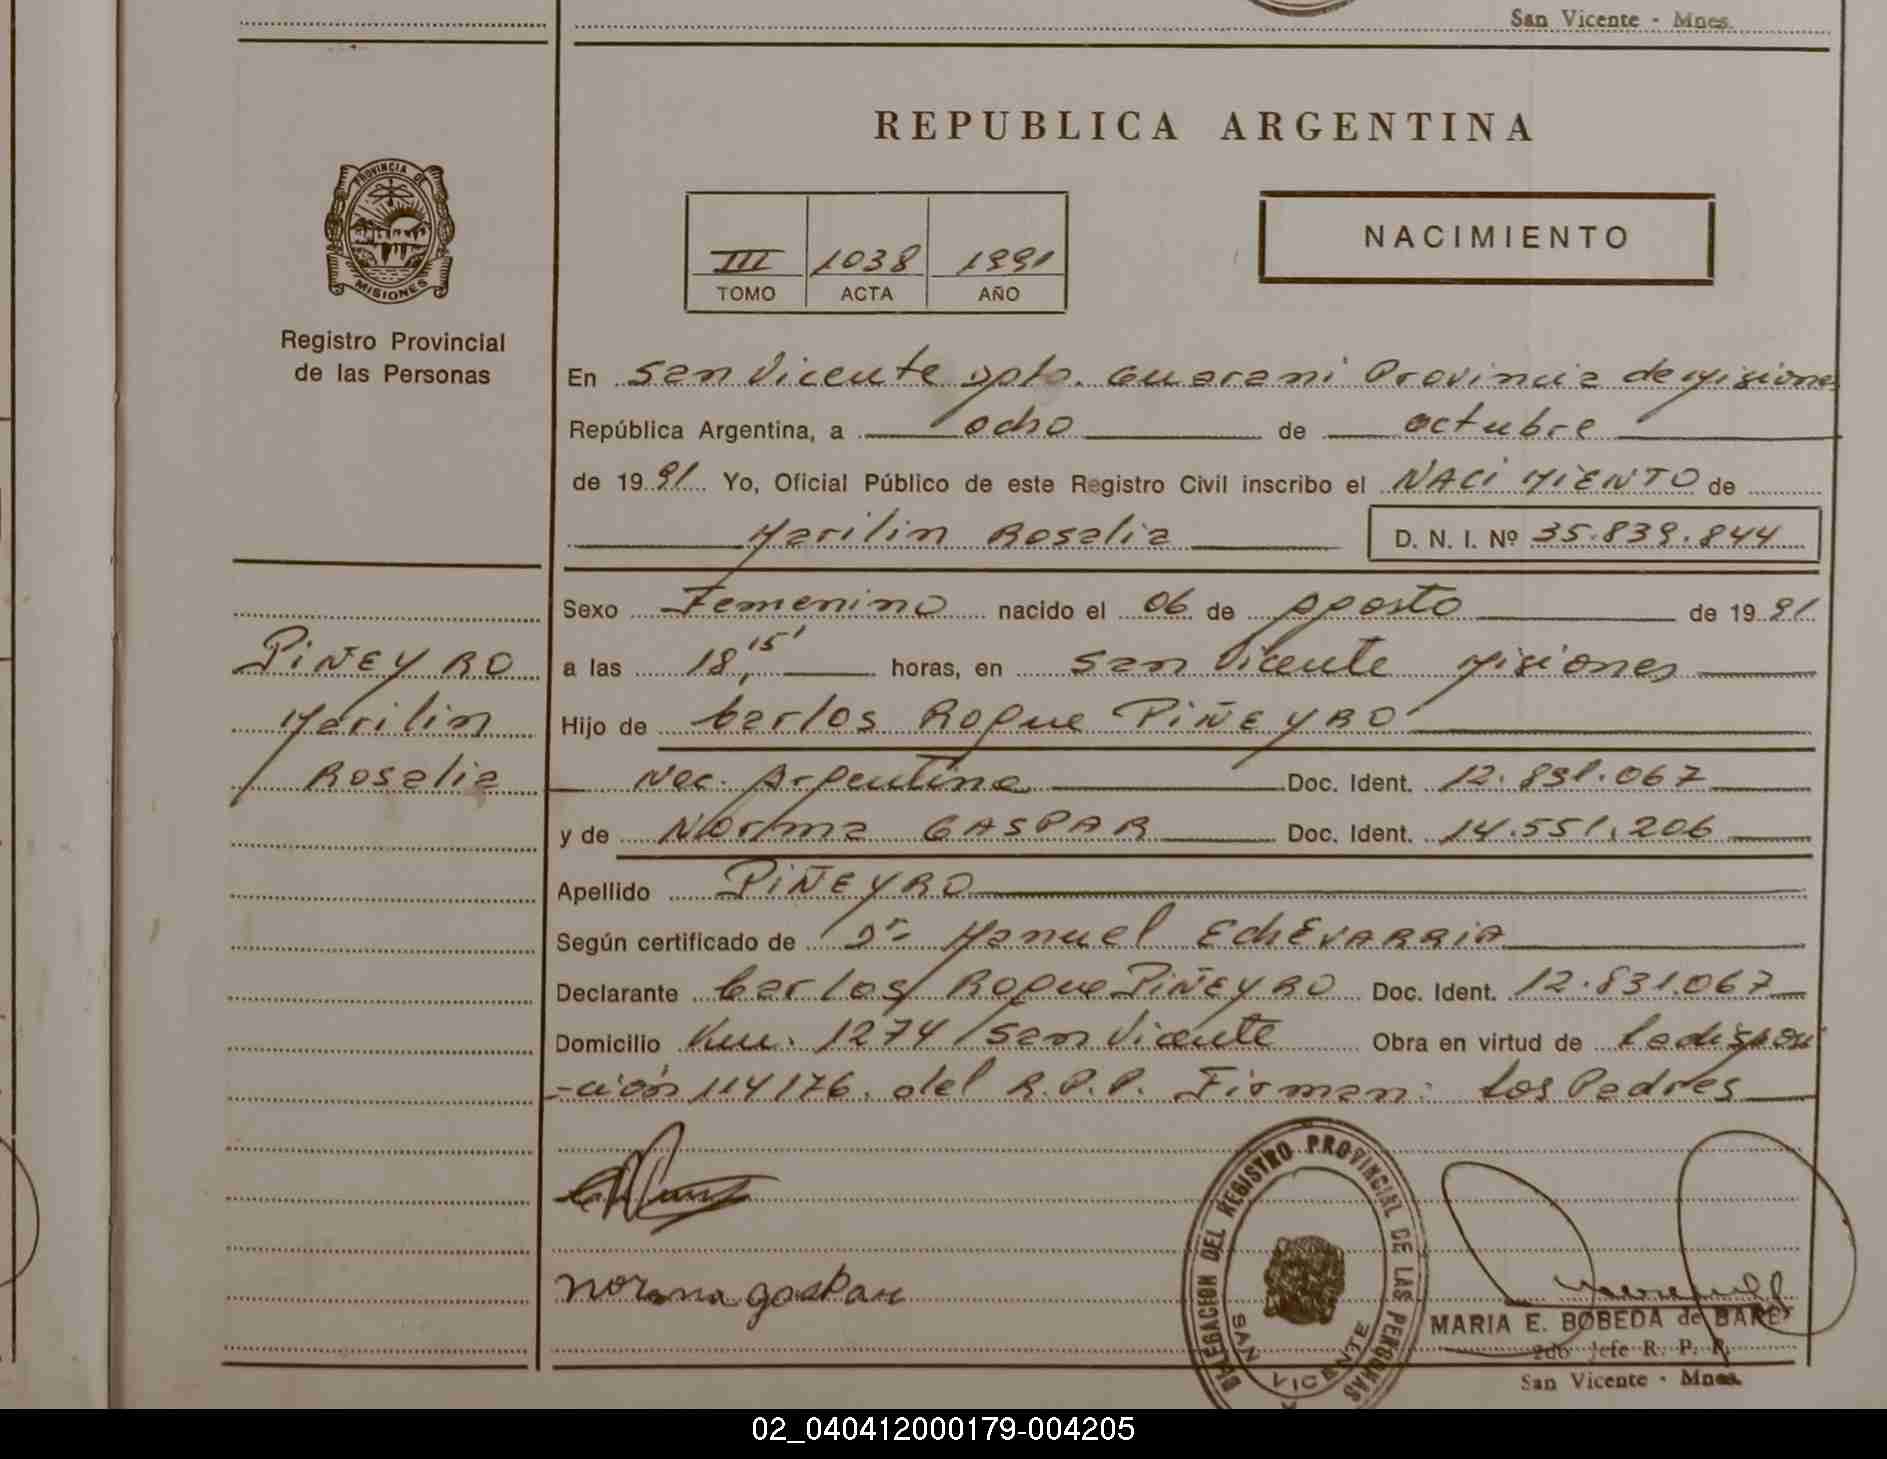 San Vicente - Mnes.
REPUBLICA ARGENTINA
PROVINCIA DE
MISIONES
Registro Provincial
de las Personas
III 1038 1991
TOMO ACTA AÑO
NACIMIENTO
En San Vicente Dpto. Guarani Provincia de Misiones
República Argentina, a ocho de octubre
de 1991 Yo, Oficial Público de este Registro Civil inscribo el NACIMIENTO de
Marilin Rosalia D. N. I. Nº 35.839.844
Sexo Femenino nacido el 06 de Agosto de 1991
PIÑEYRO
Marilin
Rosalia
a las 18,15' horas, en San Vicente Misiones
Hijo de Carlos Roque PIÑEYRO
Nac. Argentina Doc. Ident. 12.831.067
y de Norma GASPAR Doc. Ident. 14.551.206
Apellido PIÑEYRO
Según certificado de Dr. Manuel EchEVARRIA
Declarante Carlos Roque PIÑEYRO Doc. Ident. 12.831.067
Domicilio Km. 1274 San Vicente Obra en virtud de la disposi
-ción 114/76. del R.P.P. Firman: Los Padres
norma gaspar
DELEGACION DEL REGISTRO PROVINCIAL DE LAS PERSONAS
SAN VICENTE
MARIA E. BOBEDA de BARE
2do Jefe R. P. P.
San Vicente - Mnes.
02_040412000179-004205